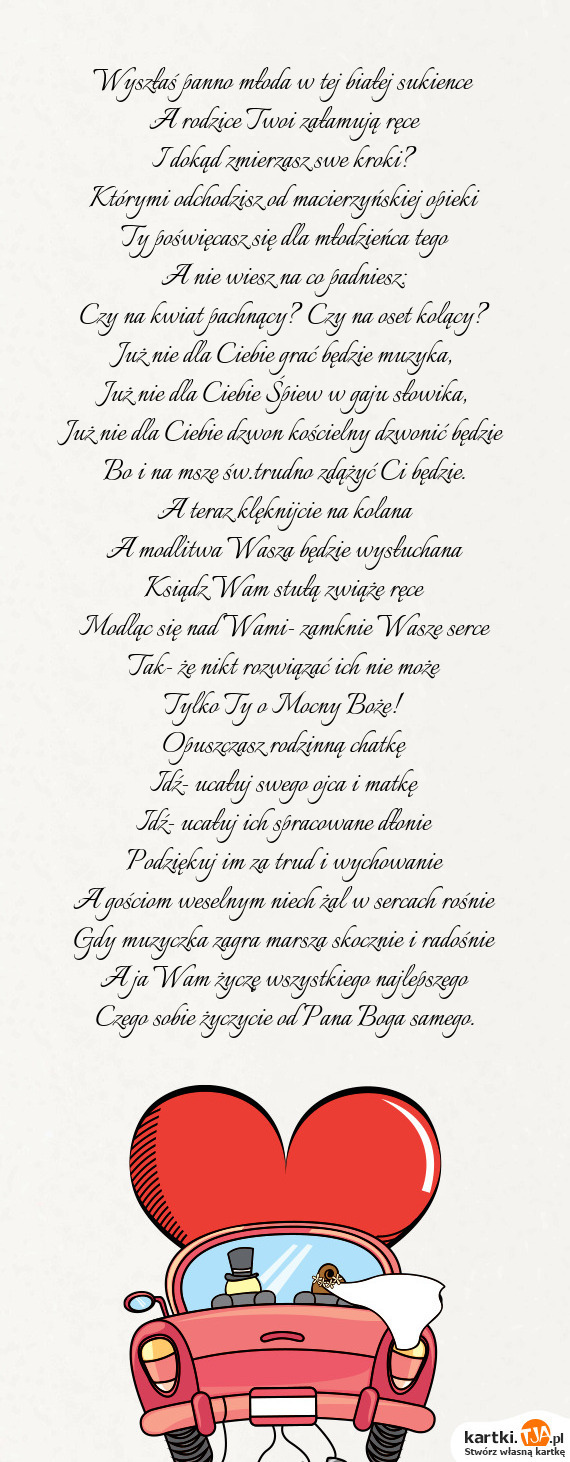 Wyszłaś panno młoda w tej białej sukience
A rodzice Twoi załamują ręce
I dokąd zmierzasz swe kroki?
Którymi odchodzisz od macierzyńskiej opieki
Ty poświęcasz się dla młodzieńca tego
A nie wiesz na co padniesz:
Czy na kwiat pachnący? Czy na oset kolący?
Już nie dla Ciebie grać będzie muzyka,
Już nie dla Ciebie Śpiew w gaju słowika,
Już nie dla Ciebie dzwon kościelny dzwonić będzie
Bo i na mszę św.trudno zdążyć Ci będzie.
A teraz klęknijcie na kolana
A modlitwa Wasza będzie wysłuchana
Ksiądz Wam stułą zwiąże ręce
Modląc się nad Wami- zamknie Wasze serce
Tak- że nikt rozwiązać ich nie może
Tylko Ty o Mocny Boże!
Opuszczasz rodzinną chatkę
Idź- ucałuj swego ojca i matkę
Idź- ucałuj ich spracowane dłonie
Podziękuj im za trud i wychowanie
A gościom weselnym niech żal w sercach rośnie
Gdy muzyczka zagra marsza skocznie i radośnie
A ja Wam życzę wszystkiego najlepszego
Czego sobie życzycie od Pana Boga samego.
kartki.TJA.pl
Stwórz własną kartkę